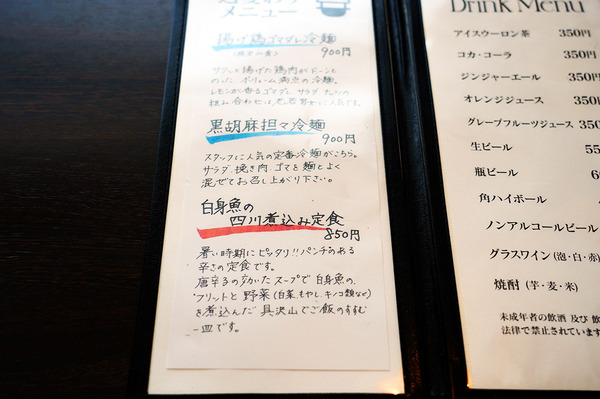 メニュー
揚げ鶏ゴマダレ冷麺
900円
サクッと揚げた鶏肉がドーンと
のった ボリューム満点の冷麺。
レモンが香るゴマダレ、サラダ、ナッツの
組み合わせは、老若男女に人気です。
黒胡麻担々冷麺
900円
スタッフに人気の定番冷麺がこちら。
サラダ、挽き肉、ゴマを麺とよく
混ぜてお召し上がり下さい。
白身魚の
四川煮込み定食
850円
暑い時期にピッタリ!!パンチのある
辛さの定食です。
唐辛子の効いたスープで白身魚の
フリットと野菜(白菜、もやし、キノコ類など)
を煮込んだ具沢山でご飯のすすむ
一皿です。
Drink Menu
アイスウーロン茶 350円
コカ・コーラ 350円
ジンジャーエール 350円
オレンジジュース 350円
グレープフルーツジュース 350円
生ビール 55
瓶ビール 6
角ハイボール
ノンアルコールビール
グラスワイン (泡・白・赤)
焼酎 (芋・麦・米)
未成年者の飲酒 及び 飲
法律で禁止されています